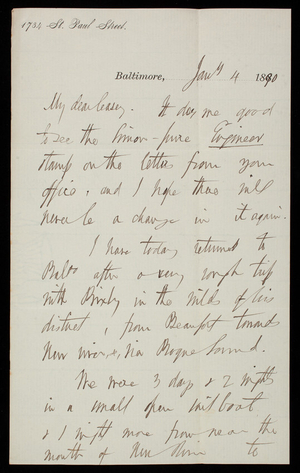 1734 St. Paul Street.
Baltimore, Jany 4 1890
My dear Casey. It does me good
to see the Simon-pure Engineer
stamp on the letters from your
office, and I hope there will
never be a change in it again.
I have today returned to
Balto after a very rough trip
with Bixby in the wilds of his
district, from Beaufort towards
New river, &, via Bogue Sound.
We were 3 days & 2 nights
in a small open sail boat
& 1 night more from near the
mouth of New River to